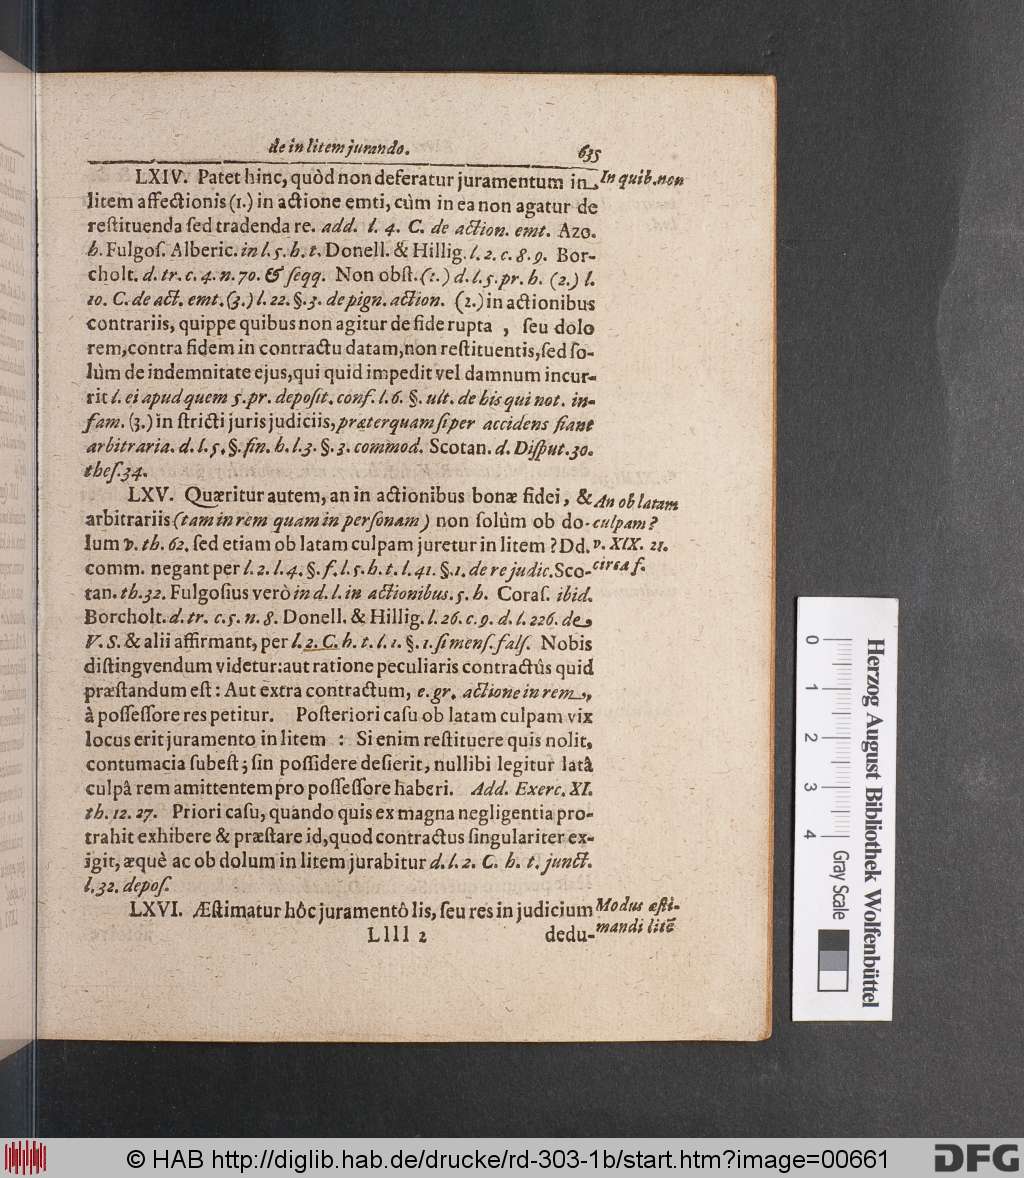 de in litem jurando. 635
LXIV. Patet hinc, quòd non deferatur juramentum in In quib. non
litem affectionis (1.) in actione emti, cùm in ea non agatur de
reſtituenda ſed tradenda re. add. l. 4. C. de action. emt. Azo.
h. Fulgoſ. Alberic. in l. 5. h. t. Donell. & Hillig. l. 2. c. 8. 9. Bor-
cholt. d. tr. c. 4. n. 70. & ſeqq. Non obſt. (1.) d. l. 5. pr. h. (2.) l.
10. C. de act. emt. (3.) l. 22. §. 3. de pign. action. (2.) in actionibus
contrariis, quippe quibus non agitur de fide rupta , ſeu dolo
rem, contra fidem in contractu datam, non reſtituentis, ſed ſo-
lùm de indemnitate ejus, qui quid impedit vel damnum incur-
rit l. ei apud quem 5. pr. depoſit. conf. l. 6. §. ult. de his qui not. in-
fam. (3.) in ſtricti juris judiciis, præterquam ſi per accidens fiant
arbitraria. d. l. 5. §. fin. h. l. 3. §. 3. commod. Scotan. d. Diſput. 30.
theſ. 34.
LXV. Quæritur autem, an in actionibus bonæ fidei , & An ob latam
arbitrariis (tam in rem quam in perſonam) non ſolùm ob do- culpam?
lum v. th. 62. ſed etiam ob latam culpam juretur in litem ? Dd. v. XIX. 21.
comm. negant per l. 2. l. 4. §. f. l. 5. h. t. l. 41. §. 1. de re judic. Sco- circa f.
tan. th. 32. Fulgoſius verò in d. l. in actionibus. 5. h. Coraſ. ibid.
Borcholt. d. tr. c. 5. n. 8. Donell. & Hillig. l. 26. c. 9. d. l. 226. de
V. S. & alii affirmant, per l. 2. C. h. t. l. 1. §. 1. ſi menſ. falſ. Nobis
diſtingvendum videtur: aut ratione peculiaris contractûs quid
præſtandum eſt : Aut extra contractum, e. gr. actione in rem,
à poſſeſſore res petitur. Poſteriori caſu ob latam culpam vix
locus erit juramento in litem : Si enim reſtituere quis nolit,
contumacia ſubeſt; ſin poſſidere deſierit, nullibi legitur latâ
culpâ rem amittentem pro poſſeſſore haberi. Add. Exerc. XI.
th. 12. 27. Priori caſu, quando quis ex magna negligentia pro-
trahit exhibere & præſtare id, quod contractus ſingulariter ex-
igit, æquè ac ob dolum in litem jurabitur d. l. 2. C. h. t. junct.
l. 32. depoſ.
LXVI. Æſtimatur hôc juramentô lis, ſeu res in judicium Modus æſti-
Llll 2 dedu- mandi litē
0 1 2 3 4
Gray Scale
Herzog August Bibliothek Wolfenbüttel
© HAB http://diglib.hab.de/drucke/rd-303-1b/start.htm?image=00661
DFG